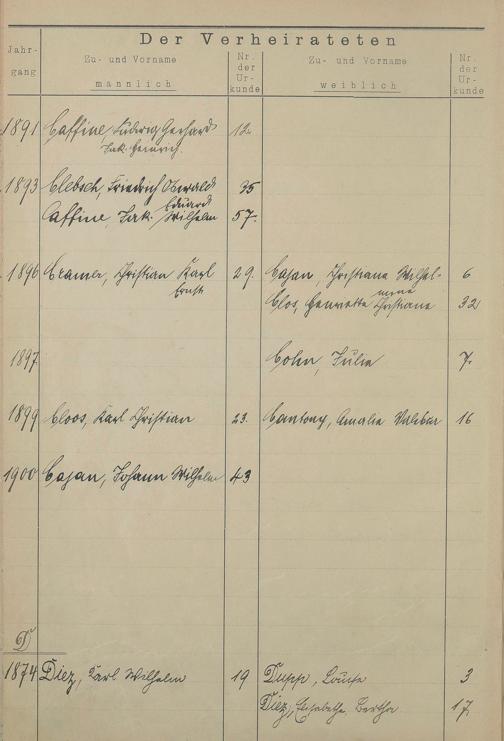 Der Verheirateten
Jahr-
gang
Zu- und Vorname
männlich
Nr.
der
Ur-
kunde
Zu- und Vorname
weiblich
Nr.
der
Ur-
kunde
1891 Caffine, Ludwig Gerhard 12.
Jak. Heinrich
1893 Clebsch, Friedrich Oswald 35
Eduard
Caffine, Jak. Wilhelm 57.
1896 Cramer, Christian Karl 29. Cajan, Christiane Wilhel- 6
Ernst mine
Clos, Henriette Christiane 32
1897 Cohn, Julie 7.
1899 Cloos, Karl Christian 23. Cantony, Amalie 16
1900 Cajan, Johann Wilhelm 43
D
1874 Diez, Karl Wilhelm 19 Dupp, Louise 3
Diez, Elisabethe Bertha 17.